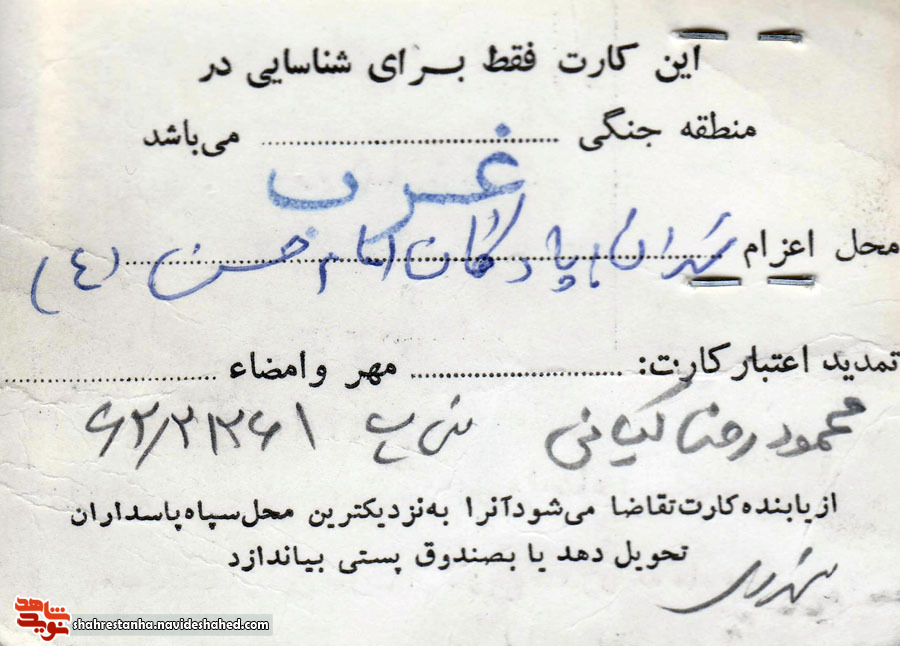 این کارت فقط برای شناسایی در
منطقه جنگی ........................ می‌باشد
غرب
محل اعزام ........................
تهران، پادگان امام حسن (٤)
تمدید اعتبار کارت: ........................ مهر وامضاء ........................
محمودرضا کیانی
از یابنده کارت تقاضا می‌شود آنرا به نزدیکترین محل سپاه پاسداران
تحویل دهد یا بصندوق پستی بیاندازد
شاهد
نوید
shahrestanha.navideshahed.com